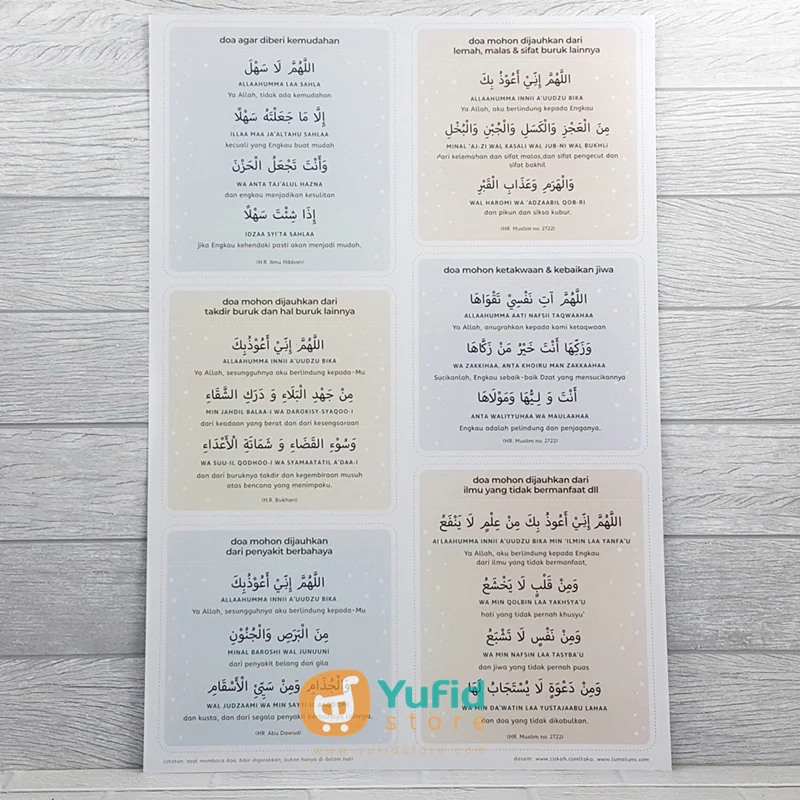 doa agar diberi kemudahan
اللَّهُمَّ لَا سَهْلَ
ALLAAHUMMA LAA SAHLA
Ya Allah, tidak ada kemudahan
إِلَّا مَا جَعَلْتَهُ سَهْلًا
ILLAA MAA JA'ALTAHU SAHLAA
kecuali yang Engkau buat mudah
وَأَنْتَ تَجْعَلُ الْحَزْنَ
WA ANTA TAJ'ALUL HAZNA
dan engkau menjadikan kesulitan
إِذَا شِئْتَ سَهْلًا
IDZAA SYI'TA SAHLAA
jika Engkau kehendaki pasti akan menjadi mudah.
(H.R. Ibnu Hibban)
doa mohon dijauhkan dari
takdir buruk dan hal buruk lainnya
اللَّهُمَّ إِنِّيْ أَعُوْذُبِكَ
ALLAAHUMMA INNII A'UUDZU BIKA
Ya Allah, sesungguhnya aku berlindung kepada-Mu
مِنْ جَهْدِ الْبَلَاءِ وَ دَرَكِ الشَّقَاءِ
MIN JAHDIL BALAA-I WA DAROKISY-SYAQOO-I
dari keadaan yang berat dan dari kesengsaraan
وَسُوْءِ الْقَضَاءِ وَ شَمَاتَةِ الْأَعْدَاءِ
WA SUU-IL QODHOO-I WA SYAMAATATIL A'DAA-I
dan dari buruknya takdir dan kegembiraan musuh
atas bencana yang menimpaku.
(H.R. Bukhari)
doa mohon dijauhkan
dari penyakit berbahaya
اللَّهُمَّ إِنِّيْ أَعُوْذُبِكَ
ALLAAHUMMA INNII A'UUDZU BIKA
Ya Allah, sesungguhnya aku berlindung kepada-Mu
مِنَ الْبَرَصِ وَالْجُنُوْنِ
MINAL BAROSHI WAL JUNUUNI
dari penyakit belang dan gila
وَالْجُذَامِ وَمِنْ سَيِّئِ الْأَسْقَامِ
WAL JUDZAAMI WA MIN
dan kusta, dan dari segala penyakit
(HR. Abu Dawud)
doa mohon dijauhkan dari
lemah, malas & sifat buruk lainnya
اللَّهُمَّ إِنِّيْ أَعُوْذُ بِكَ
ALLAAHUMMA INNII A'UUDZU BIKA
Ya Allah, aku berlindung kepada Engkau
مِنَ الْعَجْزِ وَالْكَسَلِ وَالْجُبْنِ وَالْبُخْلِ
MINAL 'AJ-ZI WAL KASALI WAL JUB-NI WAL BUKHLI
dari kelemahan dan sifat malas,dan sifat pengecut dan
sifat bakhil
وَالْهَرَمِ وَعَذَابِ الْقَبْرِ
WAL HAROMI WA 'ADZAABIL QOB-RI
dan pikun dan siksa kubur.
(HR. Muslim no. 2722)
doa mohon ketakwaan & kebaikan jiwa
اللَّهُمَّ آتِ نَفْسِيْ تَقْوَاهَا
ALLAAHUMMA AATI NAFSII TAQWAAHAA
Ya Allah, anugrahkan kepada kami ketaqwaan
وَزَكِّهَا أَنْتَ خَيْرُ مَنْ زَكَّاهَا
WA ZAKKIHAA, ANTA KHOIRU MAN ZAKKAAHAA
Sucikanlah, Engkau sebaik-baik Dzat yang mensucikannya
أَنْتَ وَ لِيُّهَا وَمَوْلَاهَا
ANTA WALIYYUHAA WA MAULAAHAA
Engkau adalah pelindung dan penjaganya.
(HR. Muslim no. 2722)
doa mohon dijauhkan dari
ilmu yang tidak bermanfaat dll
اللَّهُمَّ إِنِّيْ أَعُوذُ بِكَ مِنْ عِلْمٍ لَا يَنْفَعُ
ALLAAHUMMA INNII A'UUDZU BIKA MIN 'ILMIN LAA YANFA'U
Ya Allah, aku berlindung kepada Engkau
dari ilmu yang tidak bermanfaat,
وَمِنْ قَلْبٍ لَا يَخْشَعُ
WA MIN QOLBIN LAA YAKHSYA'U
hati yang tidak pernah khusyu'
وَمِنْ نَفْسٍ لَا تَشْبَعُ
WA MIN NAFSIN LAA TASYBA'U
dan jiwa yang tidak pernah puas
وَمِنْ دَعْوَةٍ لَا يُسْتَجَابُ لَهَا
WA MIN DA'WATIN LAA YUSTAJAABU LAHAA
dan doa yang tidak dikabulkan.
(HR. Muslim no. 2722)
Yufid
store
www.yufidstore.com
catatan: saat membaca doa, bibir digerakkan; bukan hanya di dalam hati
desain: www.cizkah.com/toko; www.lumolumi.com